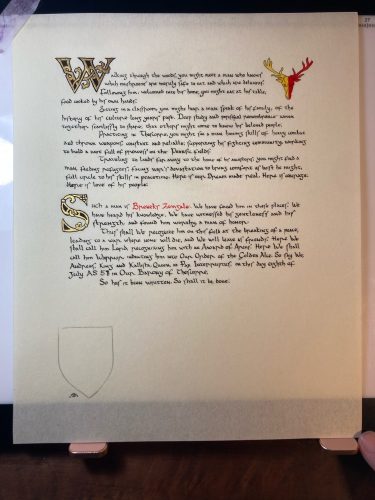 Walking through the woods, you might meet a man who knows
which mushrooms are merely safe to eat and which are delicious.
Following him, welcomed into his home, you might eat at his table,
food cooked by his own hands.
Sitting in a classroom you might hear a man speak of his family, of the
history of his culture long years past. Deep study and artful remembrance woven
together seamlessly to share, that others might come to know his beloved people.
Practicing in Thescorre, you might see a man having skill of heavy combat
and thrown weapons, constant and reliable supporting his fighting community, working
to build a name full of prowess on the Pennsic fields.
Traveling to lands far away to the home of you might find a
man feeding refugees, facing war's devastation to bring comfort he might,
full circle to his skills in peacetime. Hope is
Hope is love of his people.
Such a man is We have found him in these places. We
have heard his knowledge. We have witnessed his gentleness and his
strength, and found him a man of honor.
Thus shall We recognize him on this at the breaking of a
leading to a war where none will die, and we will leave as friends. Hope We
shall call him Lord, recognizing him with an Award of Arms. Hope We shall
call him inducting him into Our Order of the Golden Alce. So say We
Andreas, King, and Kallista, Queen, on this day eighth of
July AS 58 in Our Barony of Thescorre.
So has it been written. So shall it be done.